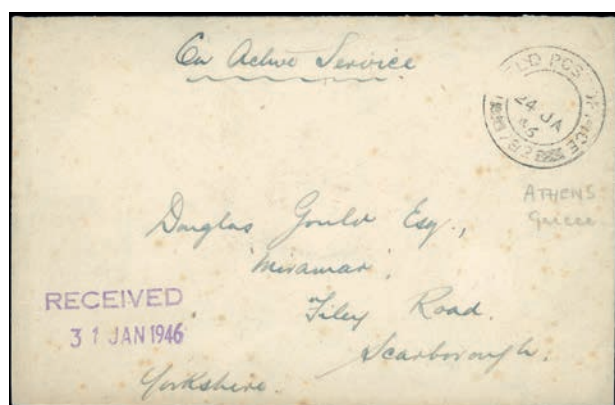 On Active Service
FIELD POST OFFICE
24 JA
46
ATHENS
Greece
Douglas Gould Esq.,
'Miramar',
Filey Road.
Scarborough.
Yorkshire.
RECEIVED
31 JAN 1946